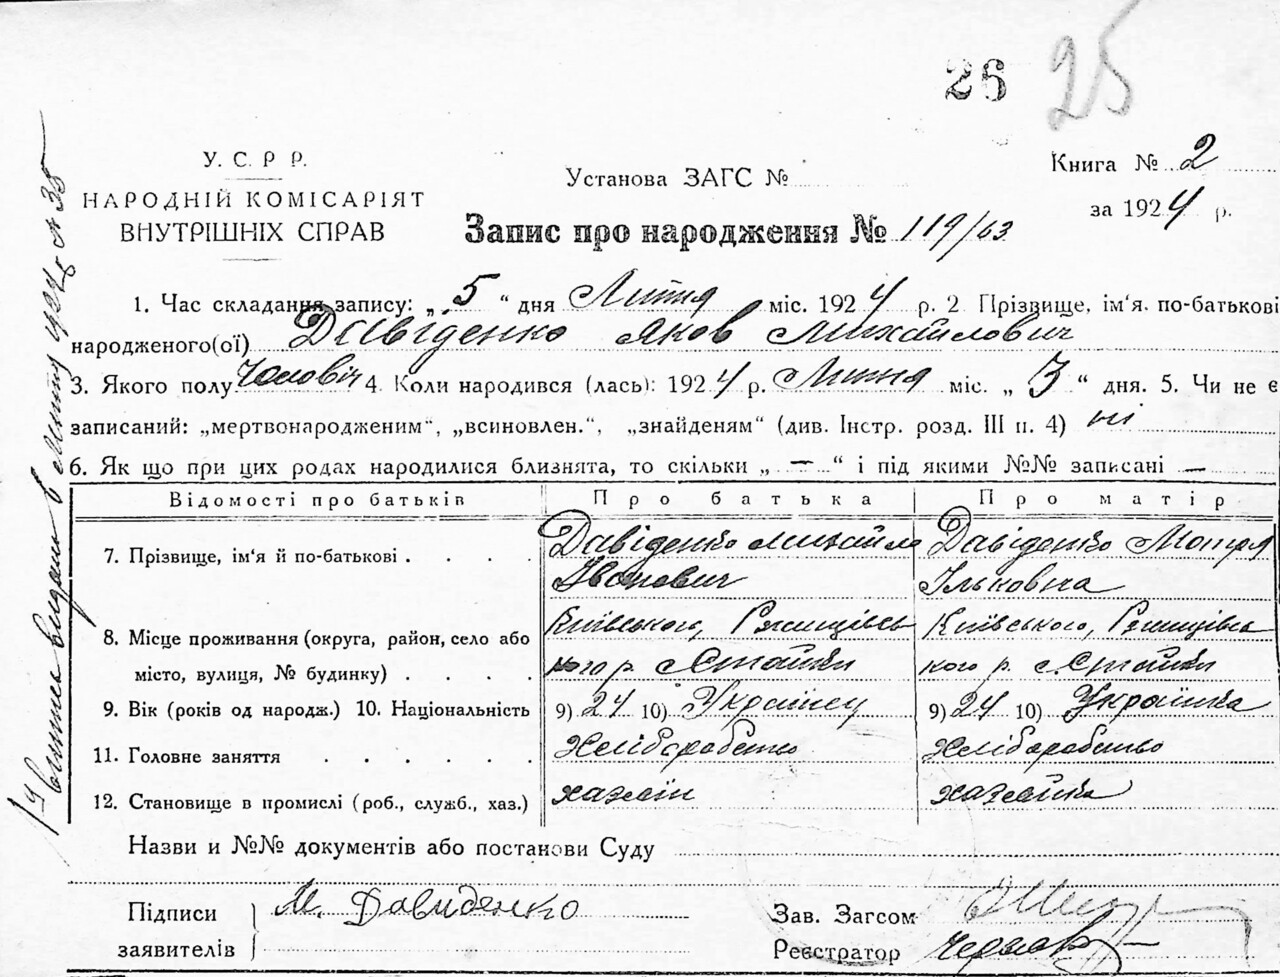 26 25
У. С. Р Р.
НАРОДНІЙ КОМІСАРІЯТ
ВНУТРІШНІХ СПРАВ
Установа ЗАГС №
Книга № 2
за 1924 р.
Запис про народження № 119/63
1. Час складання запису: „ 5 “ дня Липня міс. 1924 р. 2 Прізвище, ім'я. по-батькові
народженого(ої) Давіденко Яков Михайлович
3. Якого полу Чоловіч 4. Коли народився (лась): 1924 р. Липня міс. „ 3 “ дня. 5. Чи не є
записаний: „мертвонародженим“, „всиновлен.“, „знайденям“ (див. Інстр. розд. III п. 4) ні
6. Як що при цих родах народилися близнята, то скільки „ — “ і під якими №№ записані —
Відомості про батьків Про батька Про матір
7. Прізвище, ім'я й по-батькові . . . . Давіденко Михайло Давіденко Мотря
Іванович Ільковна
8. Місце проживання (округа, район, село або Київського, Ржищівсь Київського, Ржищівсь
місто, вулиця, № будинку) . . . . кого р. с. Стайки кого р. с. Стайки
9. Вік (років од народж.) 10. Національність 9) 24 10) Українец 9) 24 10) Українка
11. Головне заняття . . . . . . Хліборобство Хліборобство
12. Становище в промислі (роб., служб., хаз.) хазяін хазяйка
Назви и №№ документів або постанови Суду
Підписи М. Давиденко
заявителів
Зав. Загсом
Реєстратор